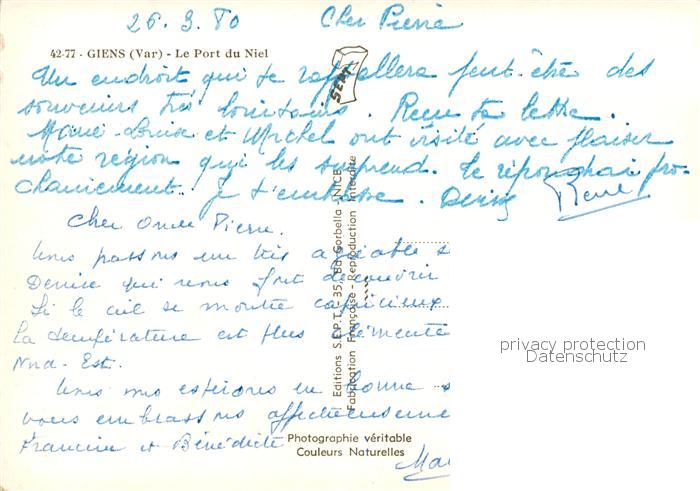 26.3.80 Cher Pierre
42-77 - GIENS (Var) - Le Port du Niel
Un endroit qui te rappellera peut-être des
souvenirs très lointains. Reçu ta lettre.
Marie-Louise et Michel ont visité avec plaisir
notre région qui les surprend. Te répondrai pro-
chainement. Je t'embrasse. Denise René
SEPT
Cher Oncle Pierre.
Nous passons un très agréable s
Denise qui nous font découvrir
Si le ciel se montre capricieux
la température est plus clémente
Nord-Est.
Nous vous espérons en bonne s
vous embrassons affectueuseme
Francine et Bénédicte
Ma
Editions S.E.P.T. - 35, Bd Gorbella - NICE
Fabrication Française - Reproduction Interdite
Photographie véritable
Couleurs Naturelles
privacy protection
Datenschutz